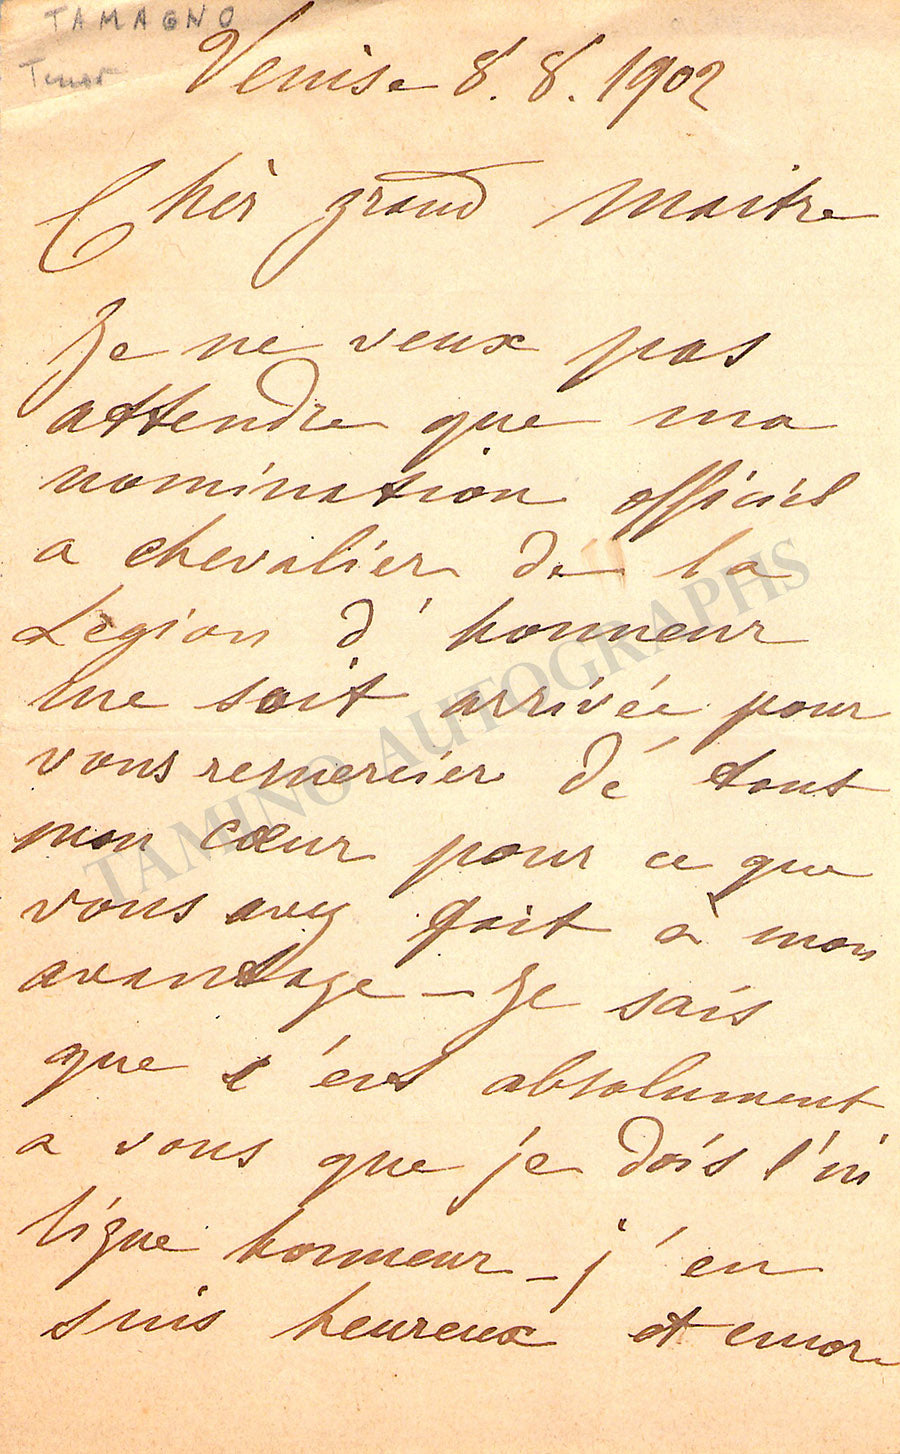 TAMAGNO
Tenor
Venise 8.8.1902
Chèr grand maitre
Je ne veux pas
attendre que ma
nomination officiel
a chevalier de la
Legion d'honneur
me soit arrivée pour
vous remercier dé tout
mon cœur pour ce que
vous avez fait à mon
avantage - Je sais
que c'est absolument
a vous que je dois l'in
signe honneur - j'en
suis heureux et
TAMINO AUTOGRAPHS